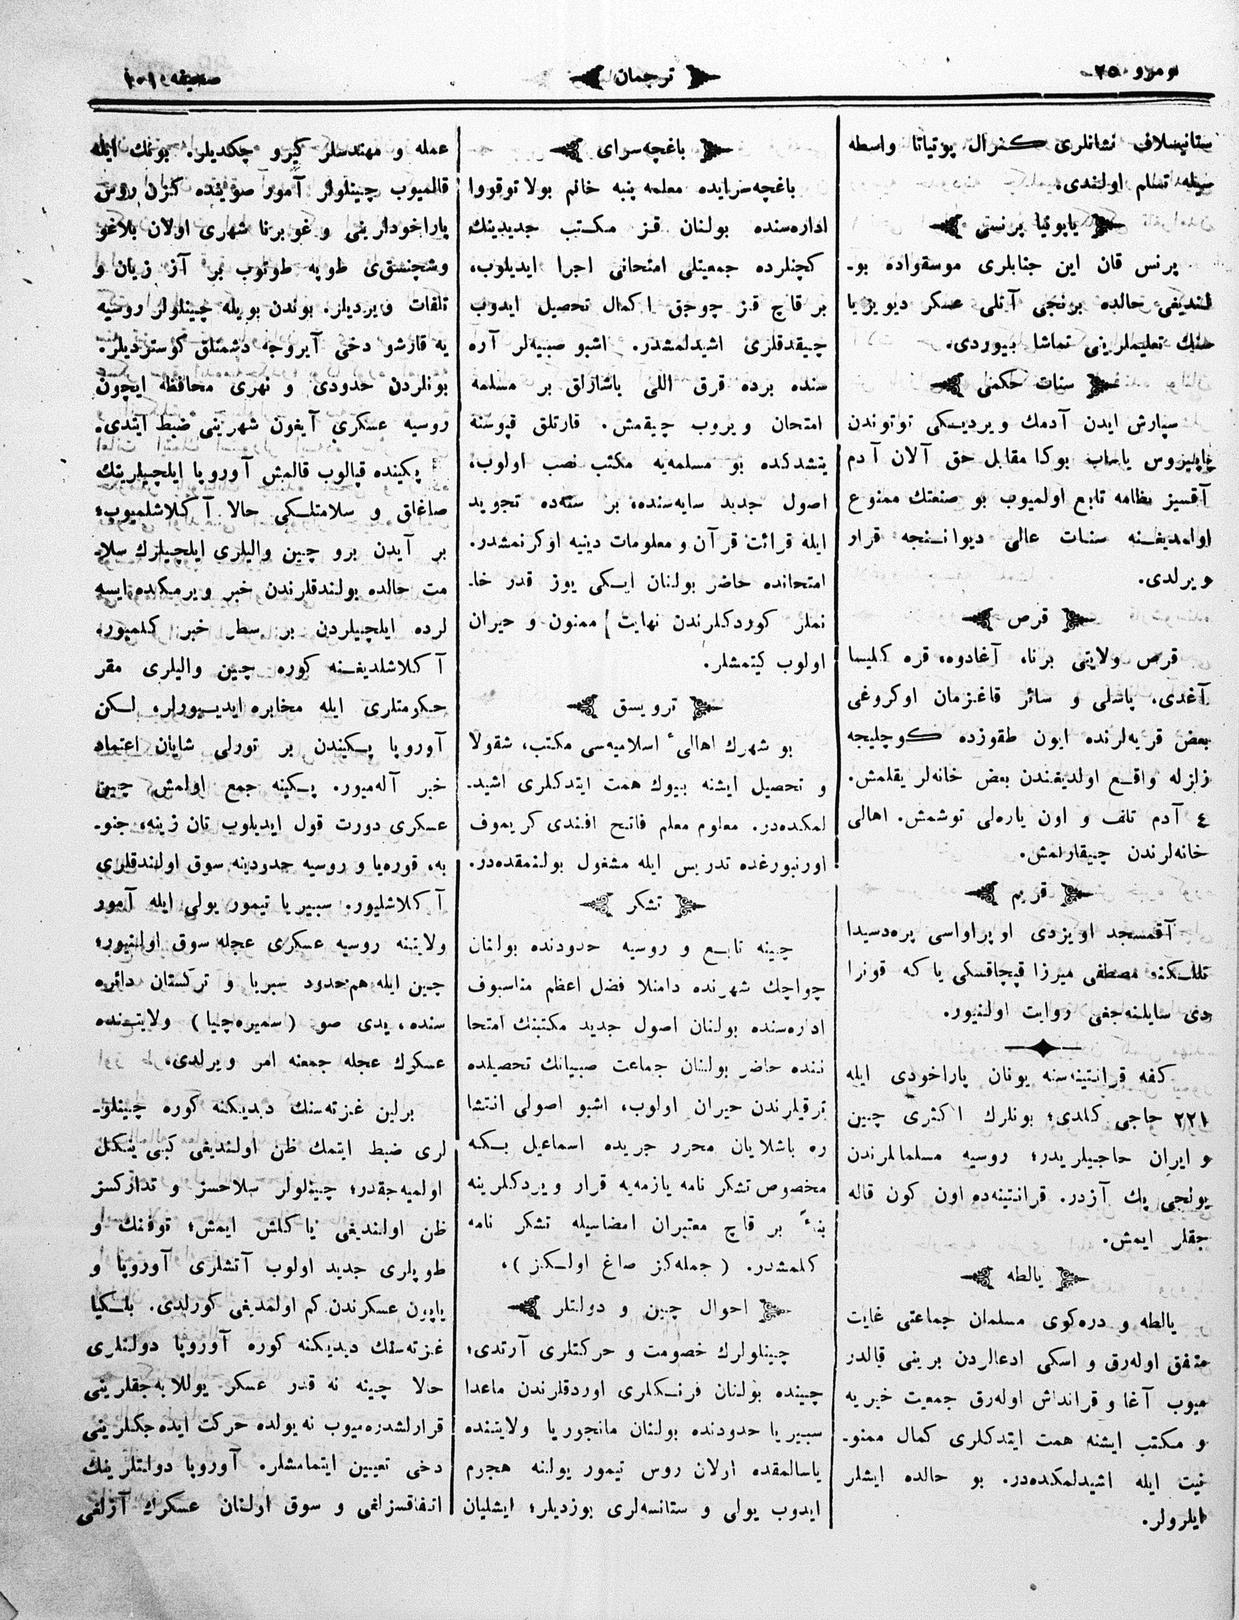 نومرو ٢٥
ترجمان
صحیفه
ستانیسلاف نشانلری كنرال پوتیاتا واسطه
سیله تسلم اولندی.
یاپونیا پرنسی
پرنس قان این جنابلری موسقواده بو-
لندیغی حالده برنجی آتلی عسكر دیویزیا
سنك تعلیملرینی تماشا بیوردی.
سنات حكمی
سپارش ایدن آدمك ویردیكی توتوندن
پاپیروس یاساب بوكا مقابل حق آلان آدم
آقسیز نظامه تابع اولمیوب بو صنعتك ممنوع
اولمدیغنه سنات عالی دیواننجه قرار
ویرلدی.
قرص
قرص ولایتی برنا، آغادوه، قره كلیسا
آغدی، پاسلی و سائر قاغزمان اوكروغی
بعض قریه‌لرنده ایون طقوزده كوچلیجه
زلزله واقع اولدیغندن بعض خانه‌لر یقلمش.
٤ آدم تلف و اون یاره‌لی توشمش. اهالی
خانه‌لرندن چیقارلمش.
قریم
آقمسجد اویزدی اوپراواسی پره‌دسیدا
تللكنه مصطفی میرزا قیچاقسكی یا كه قونرا
دی سایلنه‌جغی روایت اولنیور.
كفه قرانتینه‌سنه یونان پاراخودی ایله
٢٢١ حاجی كلدی؛ بونلرك اكثری چین
و ایران حاجیلریدر؛ روسیه مسلمانلرندن
یولجی پك آزدر. قرانتینه‌ده اون كون قاله
جقلر ایمش.
یالطه
یالطه و دره‌كوی مسلمان جماعتی غایت
متفق اوله‌رق و اسكی ادعالردن برینی قالدر
میوب آغا و قرانداش اوله‌رق جمعیت خیریه
و مكتب ایشنه همت ایتدكلری كمال ممنو-
نیت ایله اشیدلمكده‌در. بو حالده ایشلر
ایلرولر.
باغچه‌سرای
باغچه‌سرایده معلمه پنبه خانم بولاتوقووا
اداره‌سنده بولنان قز مكتب جدیدینك
كچنلرده جمعیتلی امتحانی اجرا ایدیلوب،
بر قاچ قز چوجق اكمال تحصیل ایدوب
چیقدقلری اشیدلمشدر. اشبو صبیه‌لر آره
سنده برده قرق اللی یاشارلق بر مسلمه
امتحان ویروب چیقمش. قارتلق قپوسنه
یتشدكده بو مسلمه‌یه مكتب نصب اولوب،
اصول جدید سایه‌سنده، بر سنه‌ده تجوید
ایله قرائت قرآن و معلومات دینیه اوكرنمشدر.
امتحانده حاضر بولنان ایكی یوز قدر خا-
نملر كوردكلرندن نهایت ممنون و حیران
اولوب كیتمشلر.
ترویسق
بو شهرك اهالیٔ اسلامیه‌سی مكتب، شقولا
و تحصیل ایشنه بیوك همت ایتدكلری اشید-
لمكده‌در. معلوم معلم فاتح افندی كریموف
اورنبورغده تدریس ایله مشغول بولنمقده‌در.
تشكر
چینه تابع و روسیه حدودنده بولنان
چواچك شهرنده داملا فضل اعظم مناسبوف
اداره‌سنده بولنان اصول جدید مكتبنك امتحا
ننده حاضر بولنان جماعت صبیانك تحصیلده
ترقیلرندن حیران اولوب، اشبو اصولی انتشا
ره باشلایان محرر جریده اسماعیل بكه
مخصوص تشكر نامه یازمه‌یه قرار ویردكلرینه
بناءً بر قاچ معتبران امضاسیله تشكر نامه
كلمشدر. (جمله‌كز صاغ اولكز).
احوال چین و دولتلر
چینلولرك خصومت و حركتلری آرتدی؛
چینده بولنان فرنكلری اوردقلرندن ماعدا
سبیریا حدودنده بولنان مانجوریا ولایتنده
یاسالمقده اولان روس تیمور یولنه هجوم
ایدوب یولی و ستانسه‌لری بوزدیلر؛ ایشلیان
عمله و مهندسلر كیرو چكدیلر. بونك ایله
قالمیوب چینلولر آمور صوینده كزن روس
پاراخودلرینی و غوبرنا شهری اولان بلاغو
وشچنسقی طوپه طوتوب بر آز زیان و
تلفات ویردیلر. بوندن بویله چینلولر روسیه
یه قارشو دخی آیروجه دشمنلق كوستردیلر.
بونلردن حدودی و نهری محافظه ایچون
روسیه عسكری آیغون شهرینی ضبط ایتدی.
پكینده قپالوب قالمش آوروپا ایلچیلرینك
صاغلق و سلامتلكی حالا آكلاشلمیوب،
بر آیدن برو چین والیلری ایلچیلرك سلا-
مت حالده بولندقلرندن خبر ویرمكده ایسه
لرده ایلچیلردن بر سطر خبر كلمیور.
آكلاشلدیغنه كوره چین والیلری مقر
حكومتلری ایله مخابره ایدیورلر، لكن
آوروپا پكیندن بر تورلی شایان اعتماد
خبر آله‌میور. پكینه جمع اولمش چین
عسكری دورت قول ایدیلوب تان زینه، جنو-
به، قوره‌یا و روسیه حدودینه سوق اولندقلری
آكلاشلیور. سبیریا تیمور یولی ایله آمور
ولایتنه روسیه عسكری عجله سوق اولنیور؛
چین ایله هم‌حدود سبریا و تركستان دائره
سنده، یدی صو (سمیره‌چیا) ولایتنده
عسكرك عجله جمعنه امر ویرلدی.
برلین غزته‌سنك دیدیكنه كوره چینلو-
لری ضبط ایتمك ظن اولندیغی كبی ینكل
اولمیه‌جقدر؛ چینلولر سلاحسز و تدارکسز
ظن اولندیغی یاكلش ایمش؛ توفنك و
طوپلری جدید اولوب آتشلری آوروپا و
یاپون عسكرندن كم اولمدیغی كورلدی. بلكیا
غزته‌سنك دیدیكنه كوره آوروپا دولتلری
حالا چینه نه قدر عسكر یوللایه‌جقلرینی
قرارلشدره‌میوب نه یولده حركت ایده‌جكلرینی
دخی تعیین ایتمامشلر. آوروپا دولتلرینك
اتفاقسزلغی و سوق اولنان عسكرك آزلغی